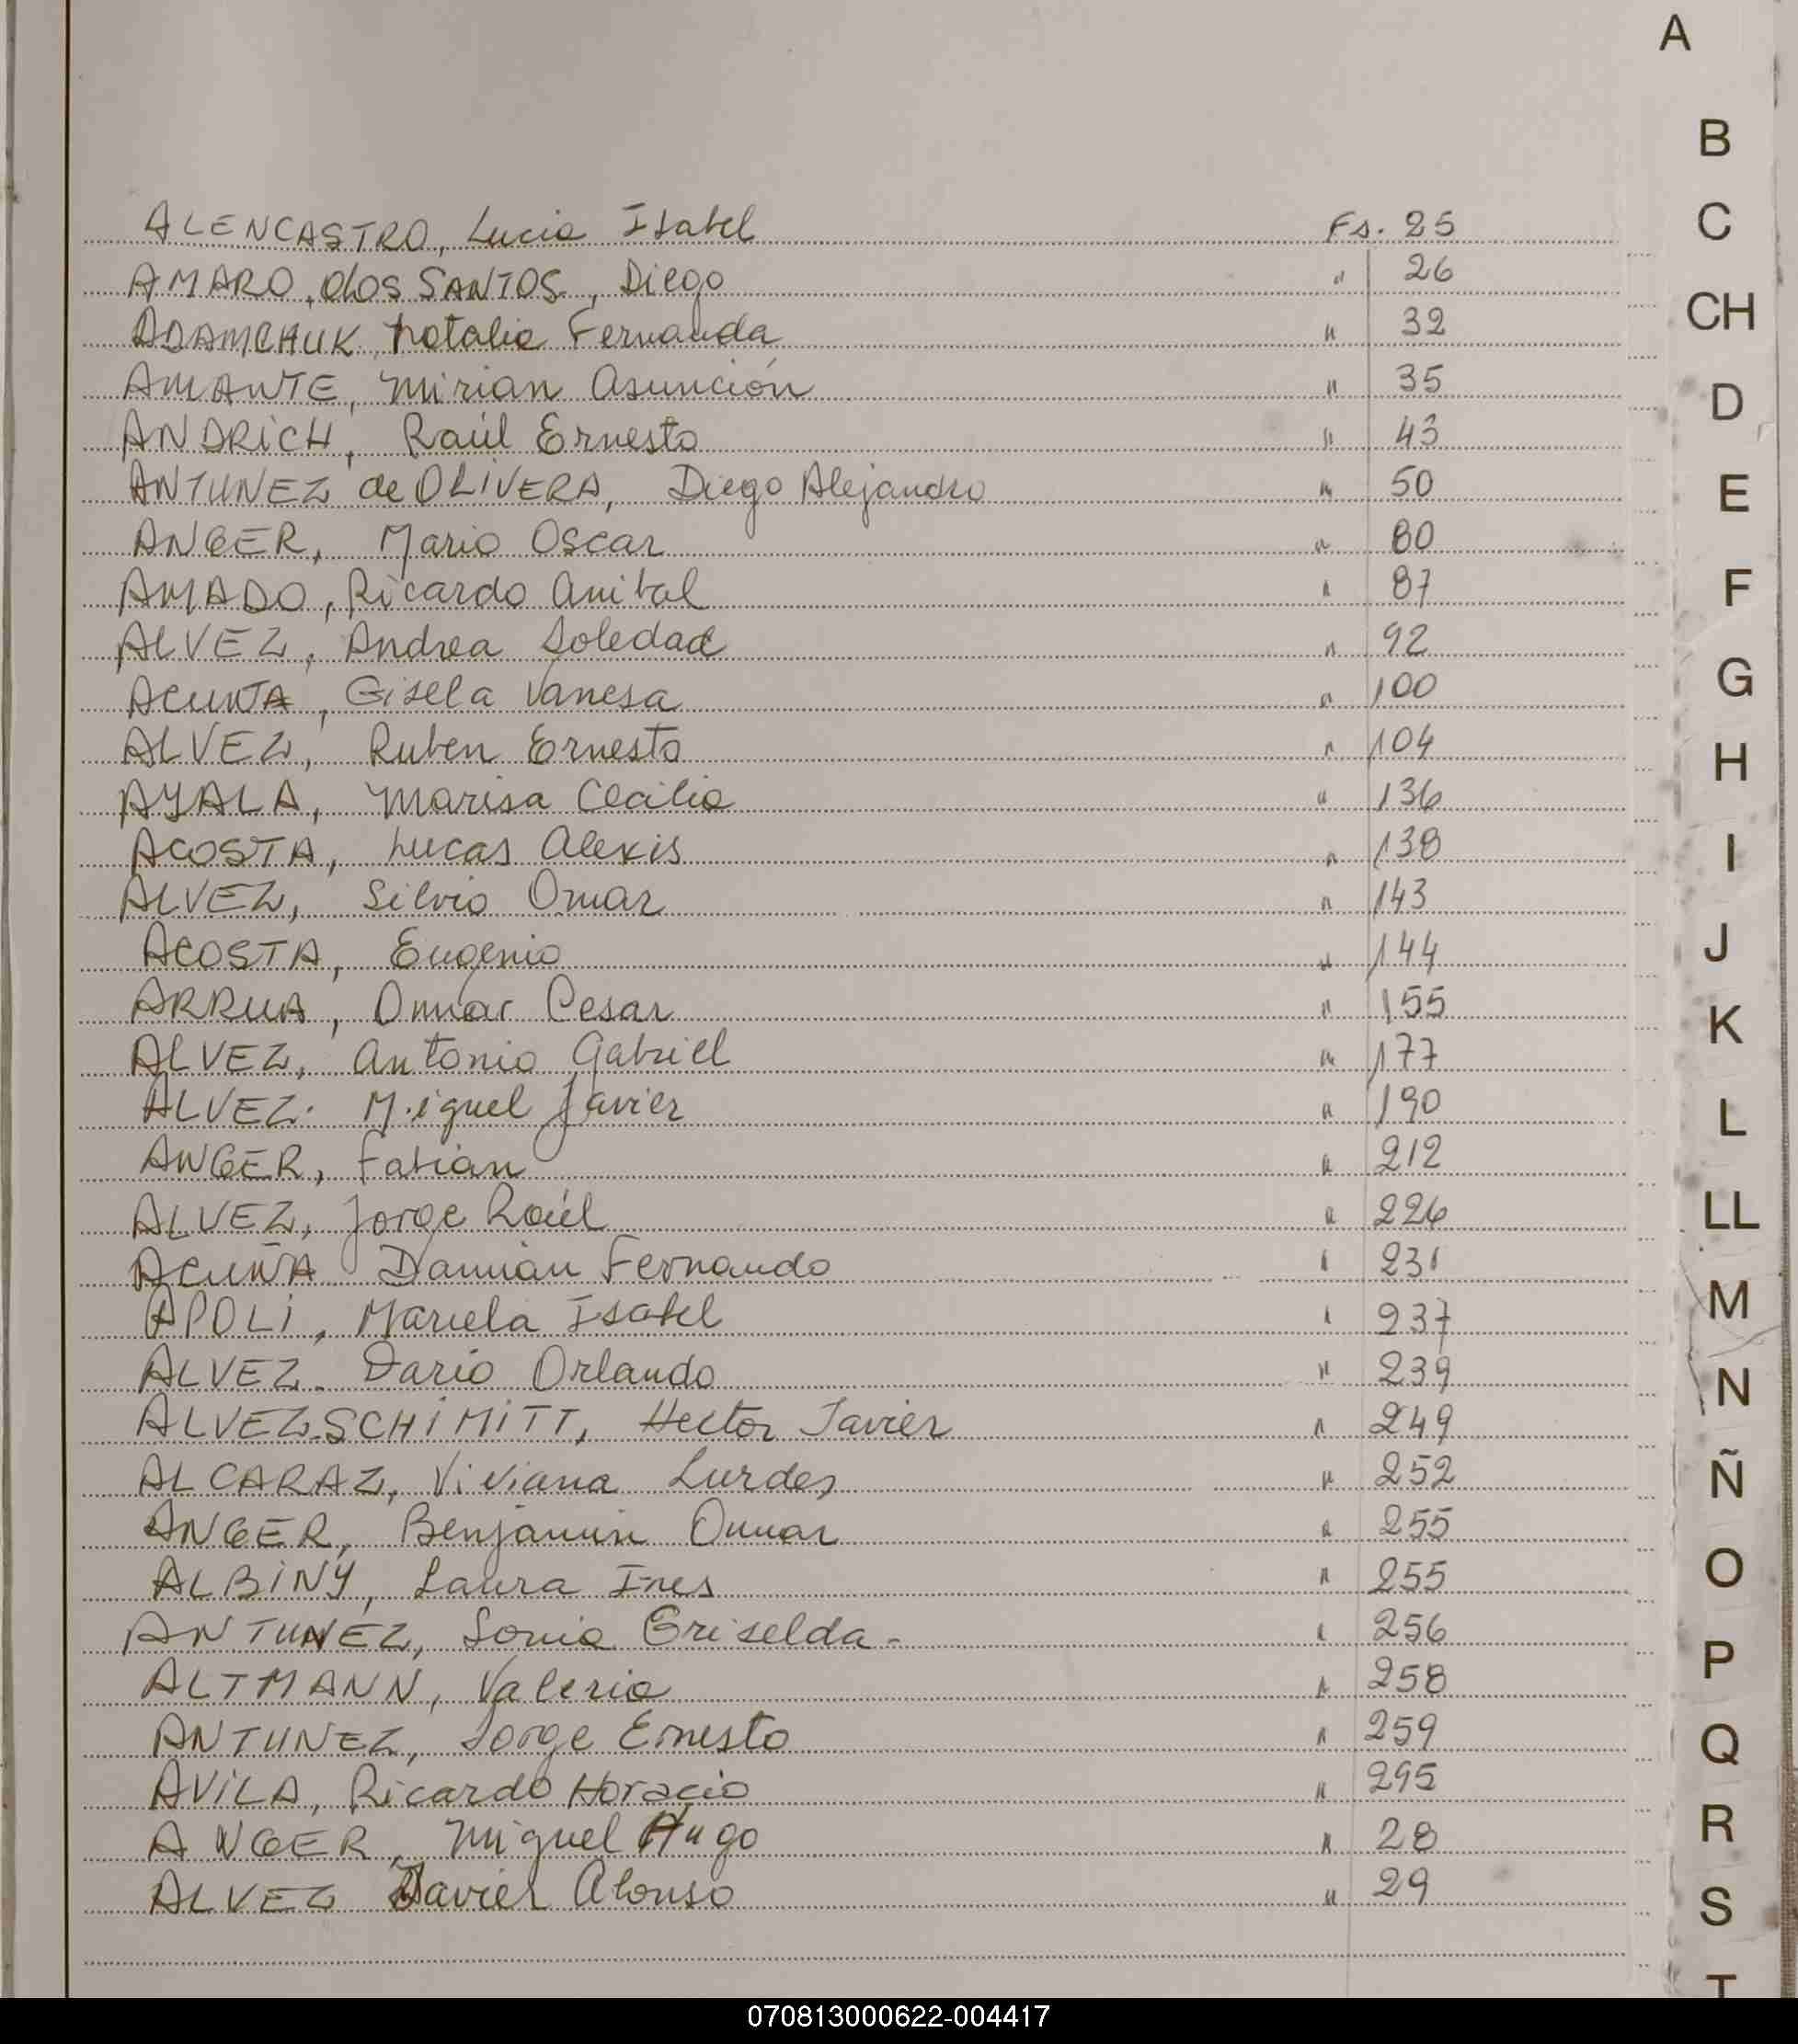 A
B
C
CH
D
E
F
G
H
I
J
K
L
LL
M
N
Ñ
O
P
Q
R
S
T
ALENCASTRO, Lucia Isabel Fs. 25
AMARO, dos SANTOS, Diego " 26
ADAMCHUK, Natalia Fernanda " 32
AMANTE, Mirian Asunción " 35
ANDRICH, Raúl Ernesto " 43
ANTUNEZ de OLIVERA, Diego Alejandro " 50
ANGER, Mario Oscar " 80
AMADO, Ricardo Anibal " 87
ALVEZ, Andrea Soledad " 92
ACUÑA, Gisela Vanesa " 100
ALVEZ, Ruben Ernesto " 104
AYALA, Marisa Cecilia " 136
ACOSTA, Lucas Alexis " 138
ALVEZ, Silvio Omar " 143
ACOSTA, Eugenio " 144
ARRUA, Omar Cesar " 155
ALVEZ, Antonio Gabriel " 177
ALVEZ. Miguel Javier " 190
ANGER, Fabian " 212
ALVEZ, Jorge Raúl " 226
ACUÑA Damián Fernando " 231
APOLI, Mariela Isabel " 237
ALVEZ. Dario Orlando " 239
ALVEZ SCHIMITT, Hector Javier " 249
ALCARAZ, Viviana Lurdes " 252
ANGER, Benjamin Omar " 255
ALBINY, Laura Ines " 255
ANTUNEZ, Sonia Griselda - " 256
ALTMANN, Valeria " 258
ANTUNEZ, Jorge Ernesto " 259
AVILA, Ricardo Horacio " 295
ANGER, Miguel Hugo " 28
ALVEZ Javier Alonso " 29
070813000622-004417